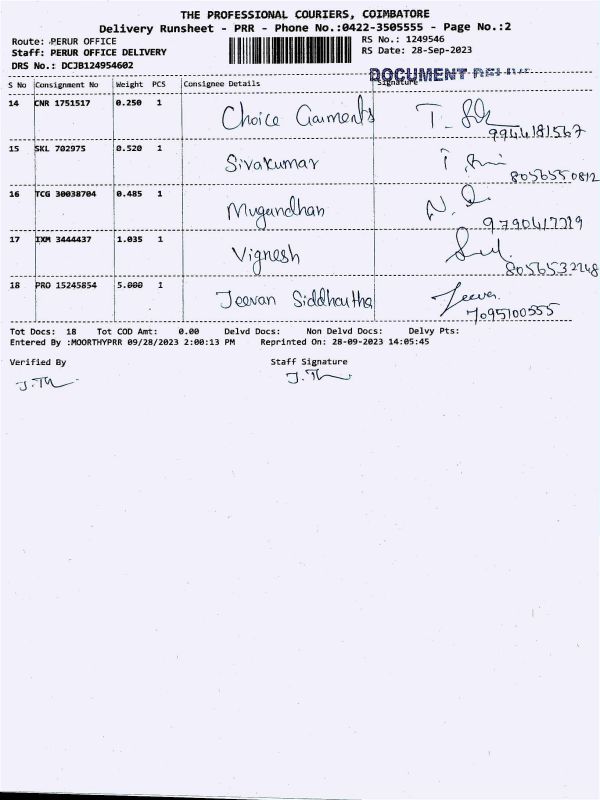 THE PROFESSIONAL COURIERS, COIMBATORE
Delivery Runsheet - PRR - Phone No.:0422-3505555 - Page No.:2
Route: PERUR OFFICE RS No.: 1249546
Staff: PERUR OFFICE DELIVERY RS Date: 28-Sep-2023
DRS No.: DCJB124954602
DOCUMENT
S No Consignment No Weight PCS Consignee Details Signature
14 CNR 1751517 0.250 1 Choice Garments
9944181567
15 SKL 702975 0.520 1 Sivakumar
8056550812
16 TCG 30038704 0.485 1 Mugundhan
9790417719
17 IXM 3444437 1.035 1 Vignesh
8056532248
18 PRO 15245854 5.000 1 Jeevan Siddhartha Jeevan
7095100555
Tot Docs: 18 Tot COD Amt: 0.00 Delvd Docs: Non Delvd Docs: Delvy Pts:
Entered By :MOORTHYPRR 09/28/2023 2:00:13 PM Reprinted On: 28-09-2023 14:05:45
Verified By Staff Signature